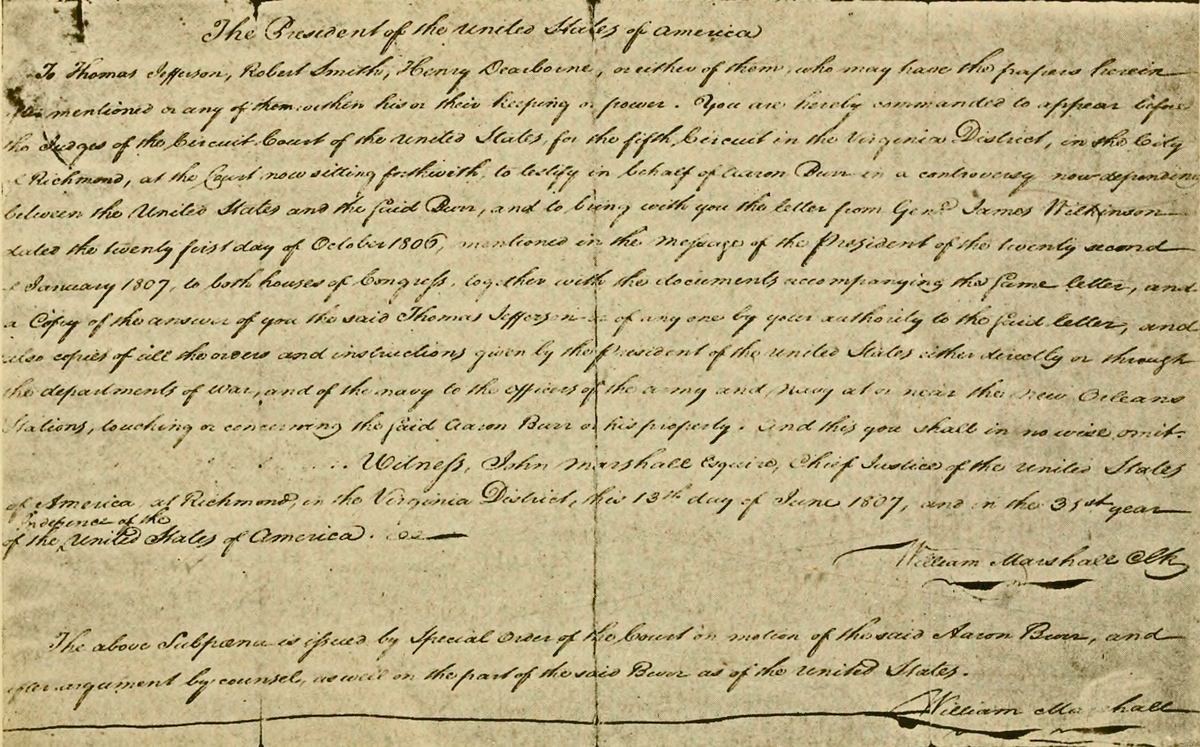 The President of the United States of America
To Thomas Jefferson, Robert Smith, Henry Dearborne, or either of them, who may have the papers herein
mentioned or any of them within his or their keeping or power. You are hereby commanded to appear before
the Judges of the Circuit Court of the United States, for the fifth Circuit in the Virginia District, in the City
of Richmond, at the Court now sitting forthwith, to testify in behalf of Aaron Burr in a controversy now depending
between the United States and the said Burr, and to bring with you the letter from Genl. James Wilkinson
dated the twenty first day of October 1806, mentioned in the message of the President of the twenty second
of January 1807, to both houses of Congress, together with the documents accompanying the same letter, and
a Copy of the answer of you the said Thomas Jefferson or of any one by your authority to the said letter, and
also copies of all the orders and instructions given by the President of the United States either directly or through
the departments of war, and of the navy to the officers of the army and navy at or near the New Orleans
Stations, touching or concerning the said Aaron Burr or his property. And this you shall in no wise omit.
Witness, John Marshall Esquire, Chief Justice of the United States
of America, at Richmond, in the Virginia District, this 13th day of June 1807, and in the 31st year
Indepence of the
of the United States of America.
William Marshall Clk
The above Subpœna is issued by Special Order of the Court on motion of the said Aaron Burr, and
after argument by counsel, as well on the part of the said Burr as of the United States.
William Marshall